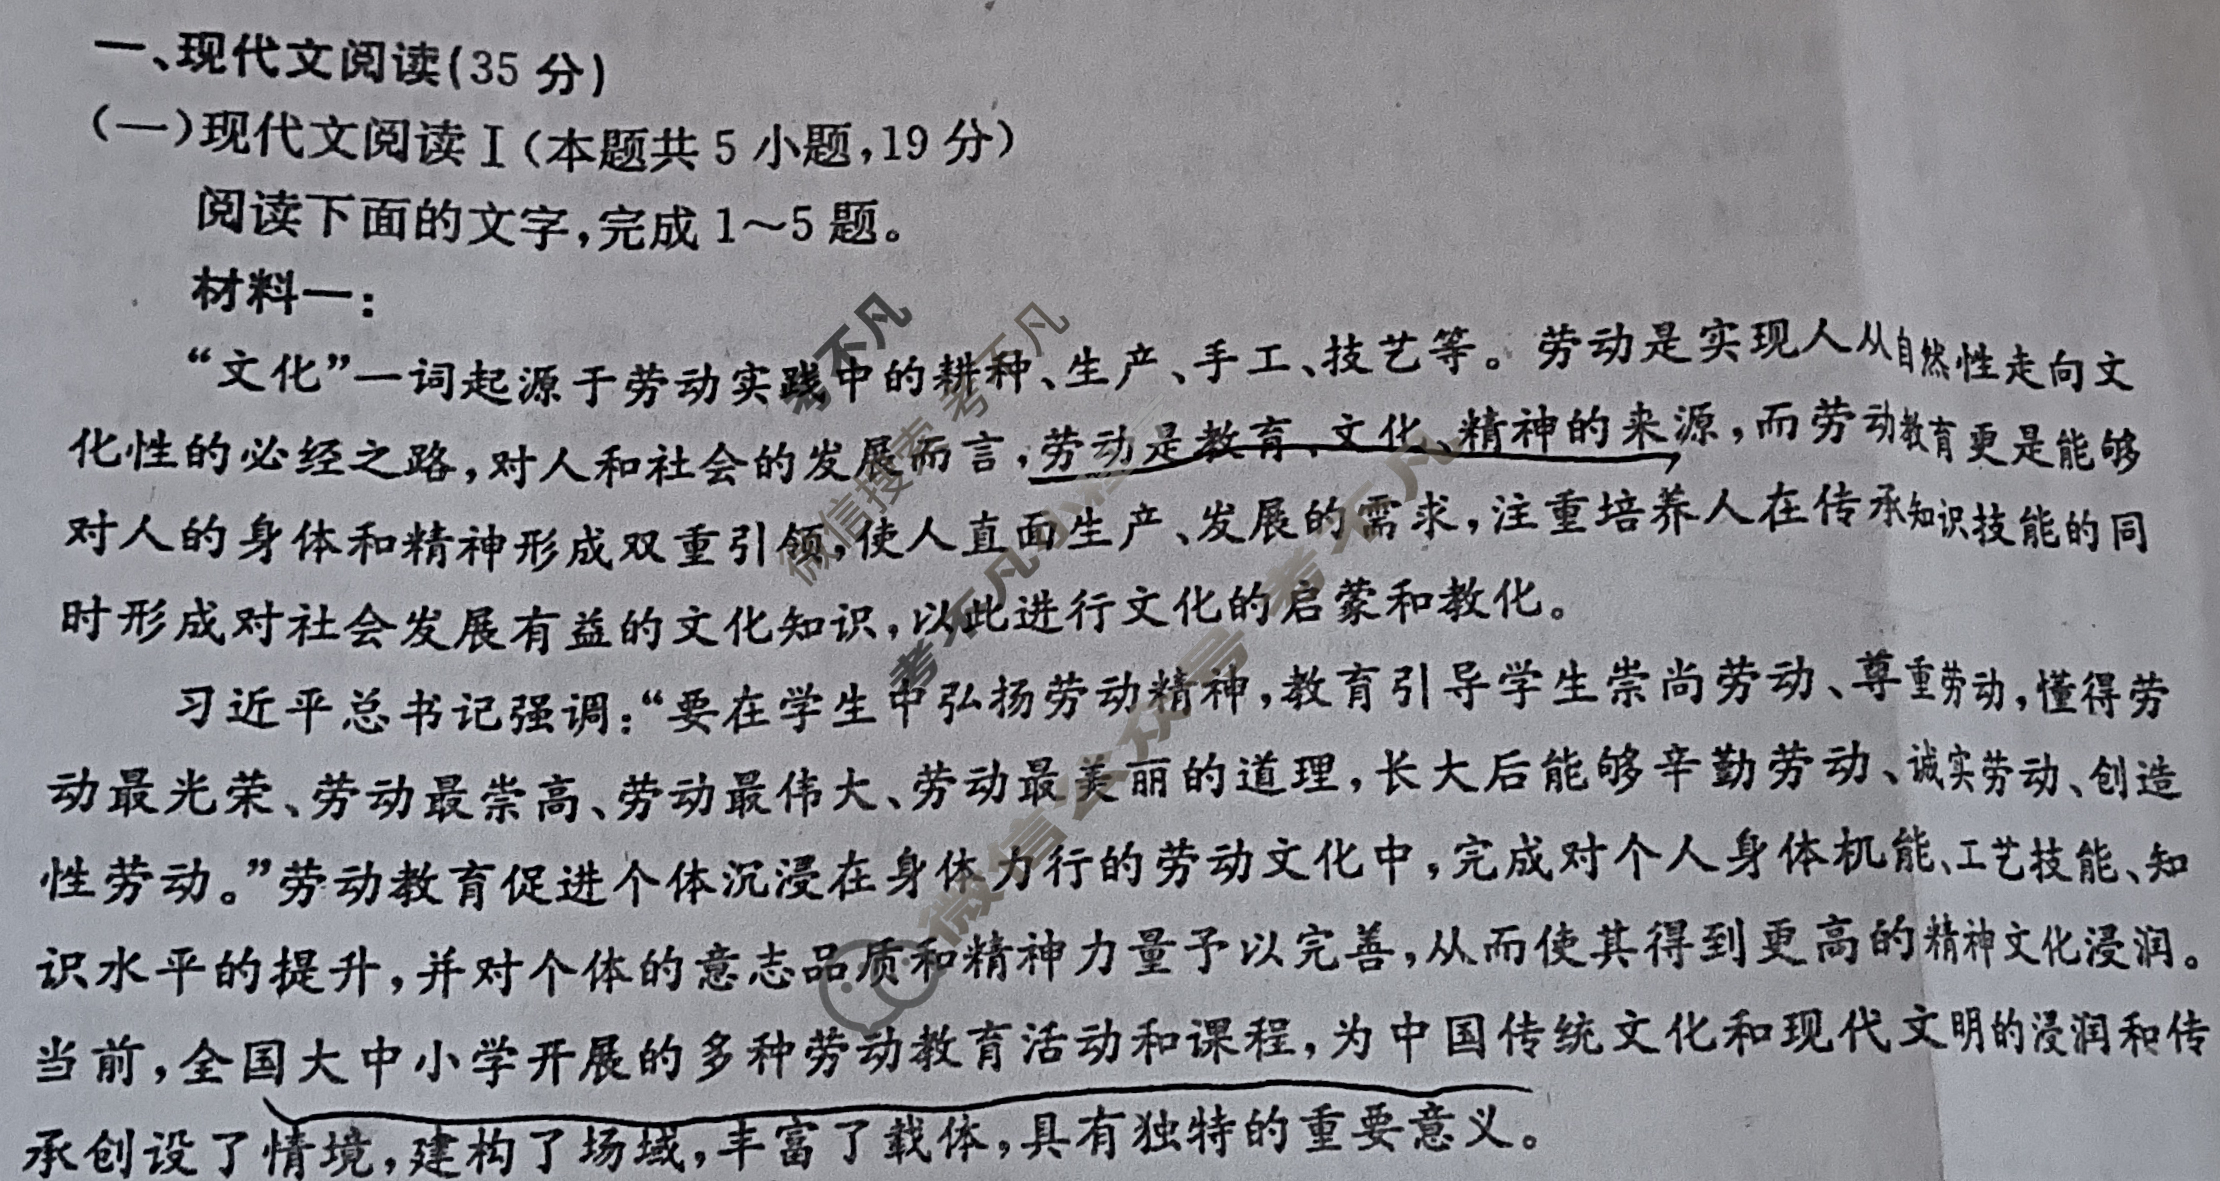 一、现代文阅读(35 分)
(一)现代文阅读 I(本题共 5 小题,19 分)
阅读下面的文字,完成 1~5 题。
材料一:
“文化”一词起源于劳动实践中的耕种、生产、手工、技艺等。劳动是实现人从自然性走向文
化性的必经之路,对人和社会的发展而言,劳动是教育、文化、精神的来源,而劳动教育更是能够
对人的身体和精神形成双重引领,使人直面生产、发展的需求,注重培养人在传承知识技能的同
时形成对社会发展有益的文化知识,以此进行文化的启蒙和教化。
习近平总书记强调:“要在学生中弘扬劳动精神,教育引导学生崇尚劳动、尊重劳动,懂得劳
动最光荣、劳动最崇高、劳动最伟大、劳动最美丽的道理,长大后能够辛勤劳动、诚实劳动、创造
性劳动。”劳动教育促进个体沉浸在身体力行的劳动文化中,完成对个人身体机能、工艺技能、知
识水平的提升,并对个体的意志品质和精神力量予以完善,从而使其得到更高的精神文化浸润。
当前,全国大中小学开展的多种劳动教育活动和课程,为中国传统文化和现代文明的浸润和传
承创设了情境,建构了场域,丰富了载体,具有独特的重要意义。
考不凡
微信搜索 考不凡
考不凡小程序
微信公众号 考不凡